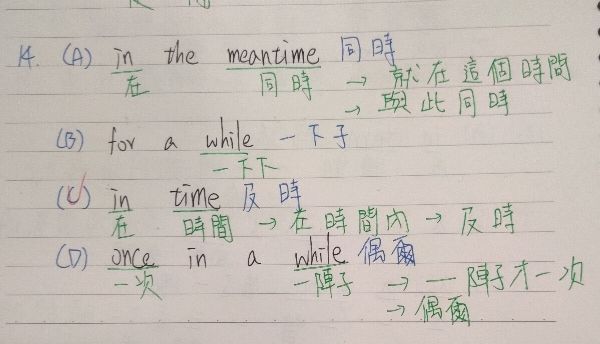 14. (A) in the meantime 同時
在 同時 → 就在這個時間
→ 與此同時
(B) for a while 一下子
一下下
(C) in time 及時
在 時間 → 在時間內 → 及時
(D) once in a while 偶爾
一次 一陣子 → 一陣子才一次
→ 偶爾